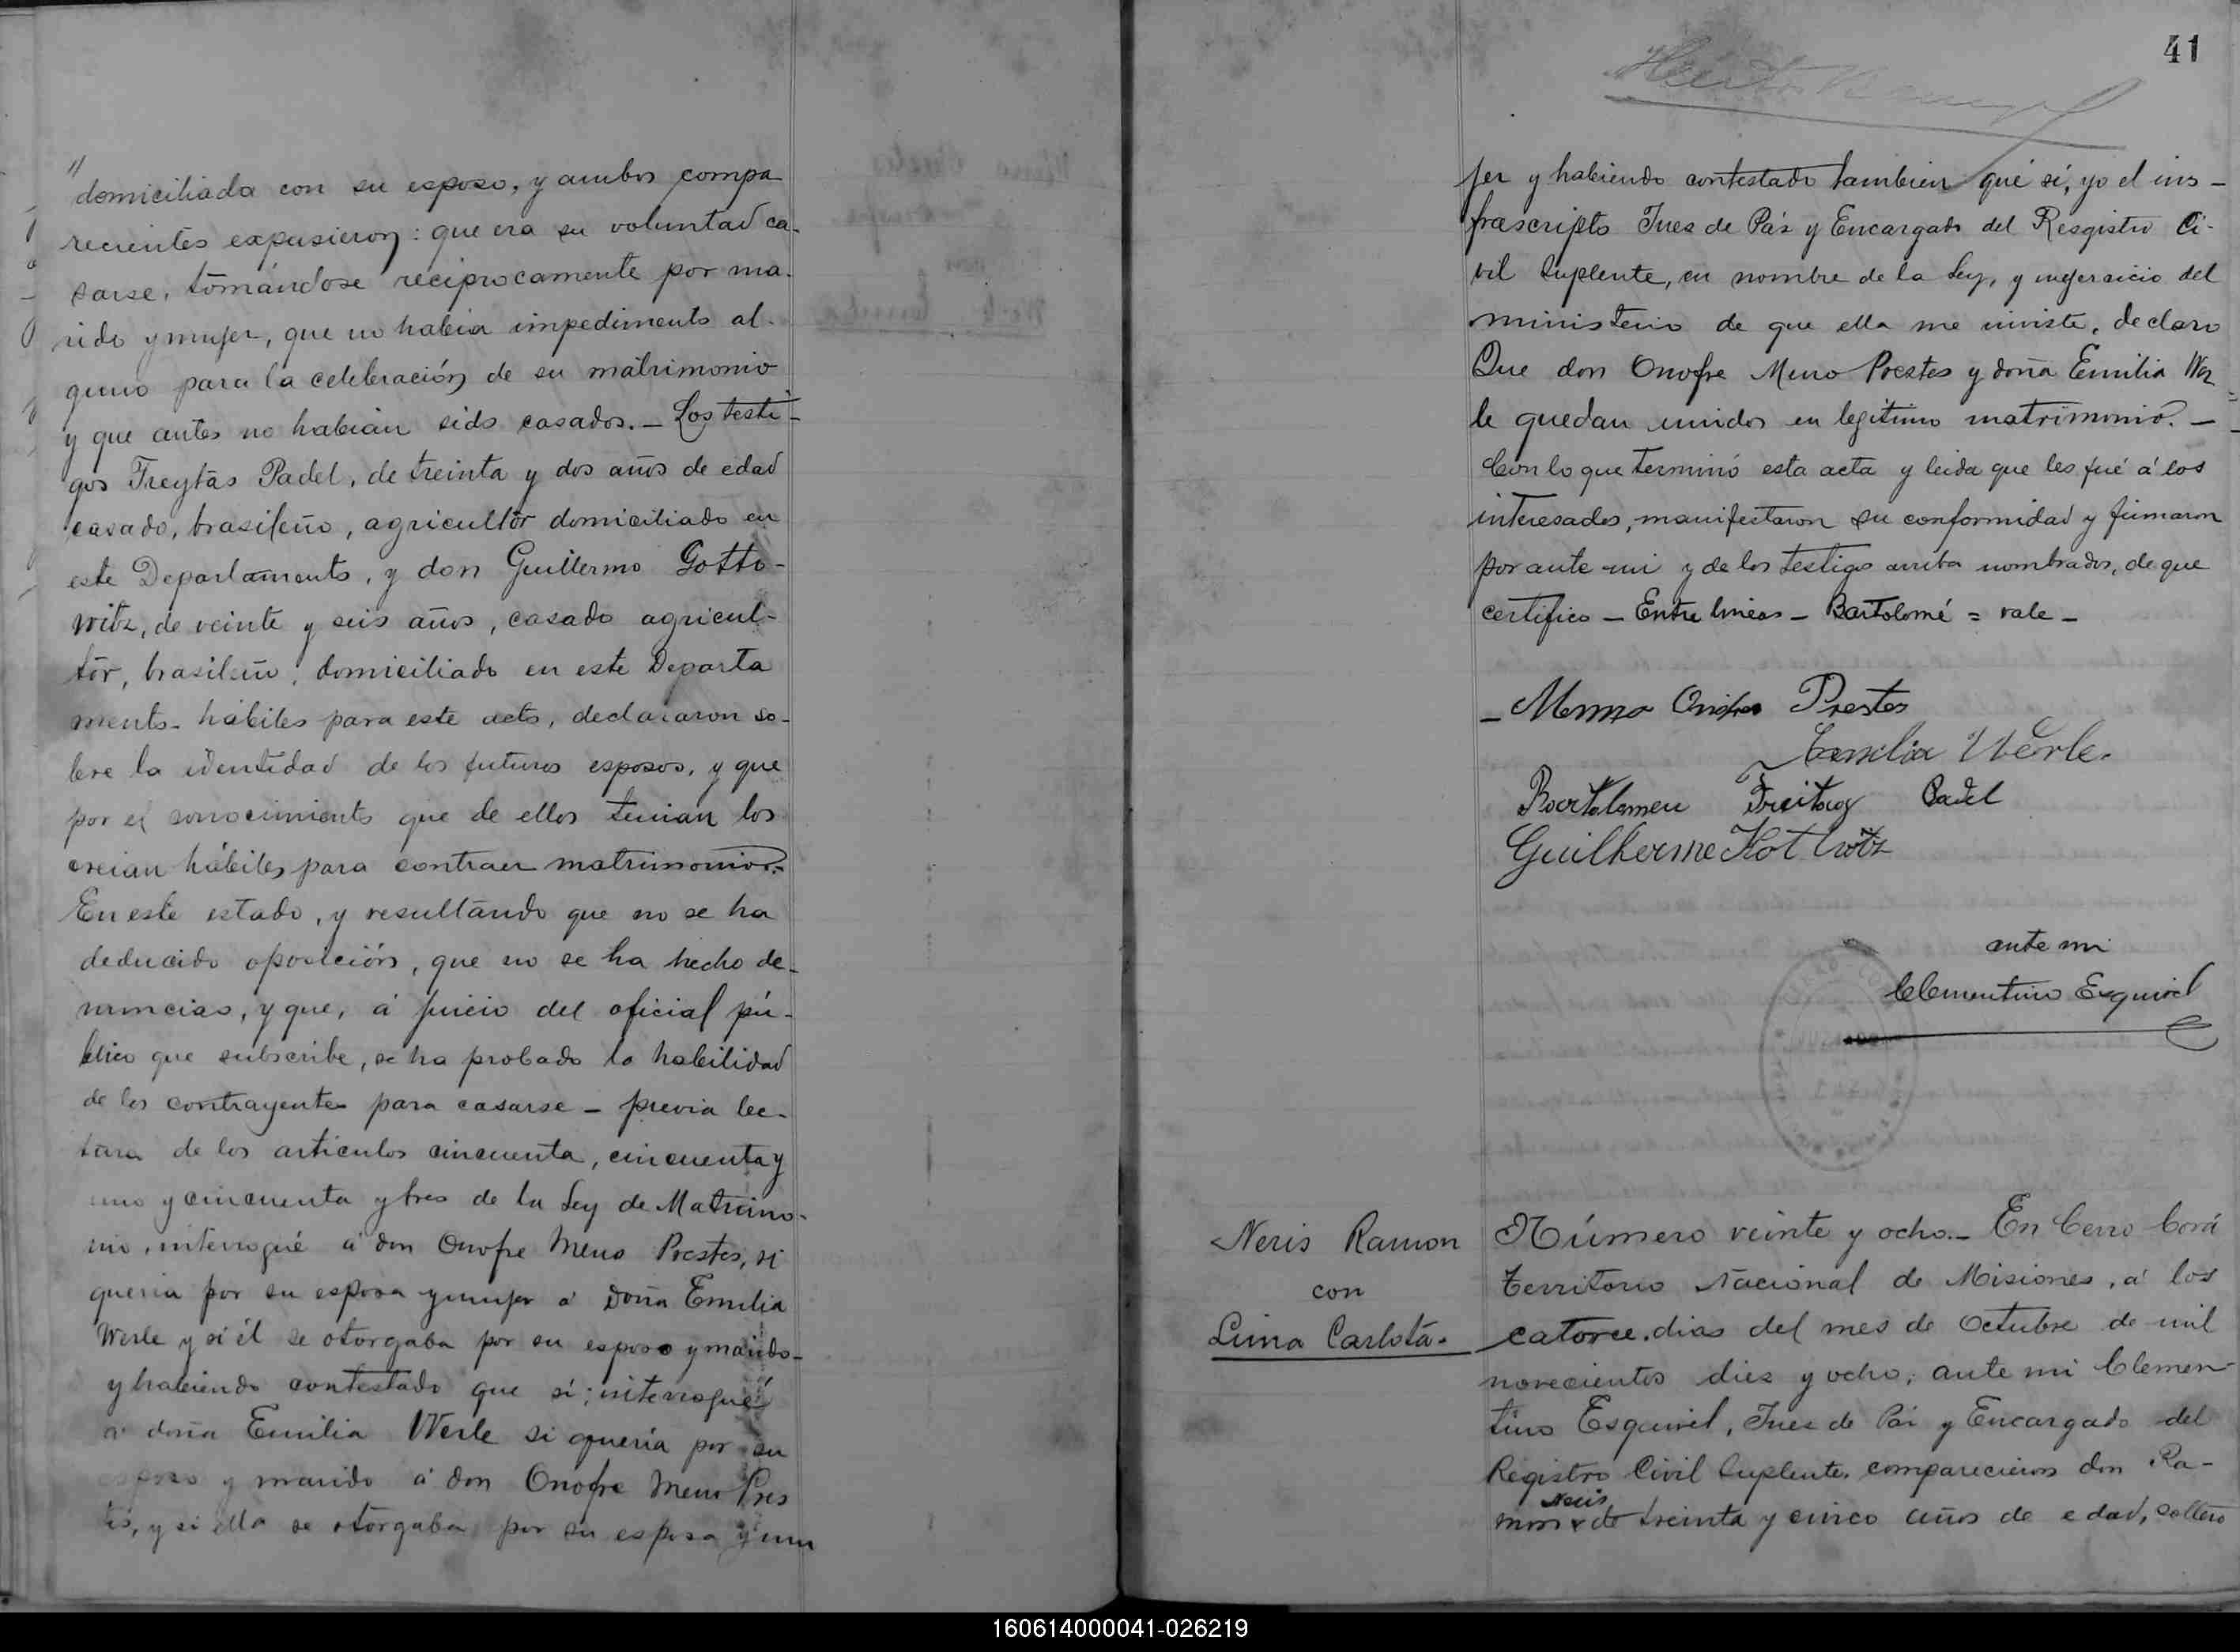 domiciliada con su esposo, y ambos compa
recientes expusieron: que era su voluntad ca-
sarse, tomándose reciprocamente por ma-
rido y mujer, que no habia impedimento al-
guno para la celebración de su matrimonio
y que antes no habian sido casados. — Los testi-
gos Freytas Padel, de treinta y dos años de edad
casado, brasileño, agricultor domiciliado en
este Departamento, y don Guillermo Gotto-
witz, de veinte y seis años, casado agricul-
tor, brasileño, domiciliado en este Departa
mento - hábiles para este acto, declararon so-
bre la identidad de los futuros esposos, y que
por el conocimiento que de ellos tenian los
creian hábiles para contraer matrimonio.
En este estado, y resultando que no se ha
deducido oposición, que no se ha hecho de-
nuncias, y que, á juicio del oficial pú-
blico que subscribe, se ha probado la habilidad
de los contrayentes para casarse — previa lec-
tura de los articulos cincuenta, cincuenta y
uno y cincuenta y tres de la Ley de Matrimo-
nio, interrogué á don Onofre Meno Prestes, si
queria por su esposa y mujer á Doña Emilia
Werle y si él se otorgaba por su esposo y marido -
y habiendo contestado que sí; interrogué
á doña Emilia Werle si quería por su
esposo y marido á don Onofre Meno Pres
tes, y si ella se otorgaba por su esposa y mu
41
jer y habiendo contestado tambien que sí, yo el ins-
frascripto Juez de Páz y Encargado del Resgistro Ci-
vil Suplente, en nombre de la Ley, y en ejersicio del
ministerio de que ella me inviste, declaro
Que don Onofre Meno Prestes y doña Emilia Wer
le quedan unidos en legitimo matrimonio. —
Con lo que terminó esta acta y leida que les fué á los
interesados, manifestaron su conformidad y firmaron
por ante mi y de los testigos arriba nombrados, de que
certifico — Entre lineas — Bartolomé = vale —
— Menno Onofre Prestes
Emilia Werle.
Bartolomeu Freitag Padel
Guilherme Kottwitz
ante mi
Clementino Esquivel
Neris Ramon
con
Lima Carlota.
Número veinte y ocho. — En Cerro Corá
Territorio Nacional de Misiones, á los
catorce dias del mes de Octubre de mil
novecientos diez y ocho, ante mi Clemen-
tino Esquivel, Juez de Páz y Encargado del
Registro Civil Suplente, comparecieron don Ra-
Neris
mon de treinta y cinco años de edad, soltero
160614000041-026219